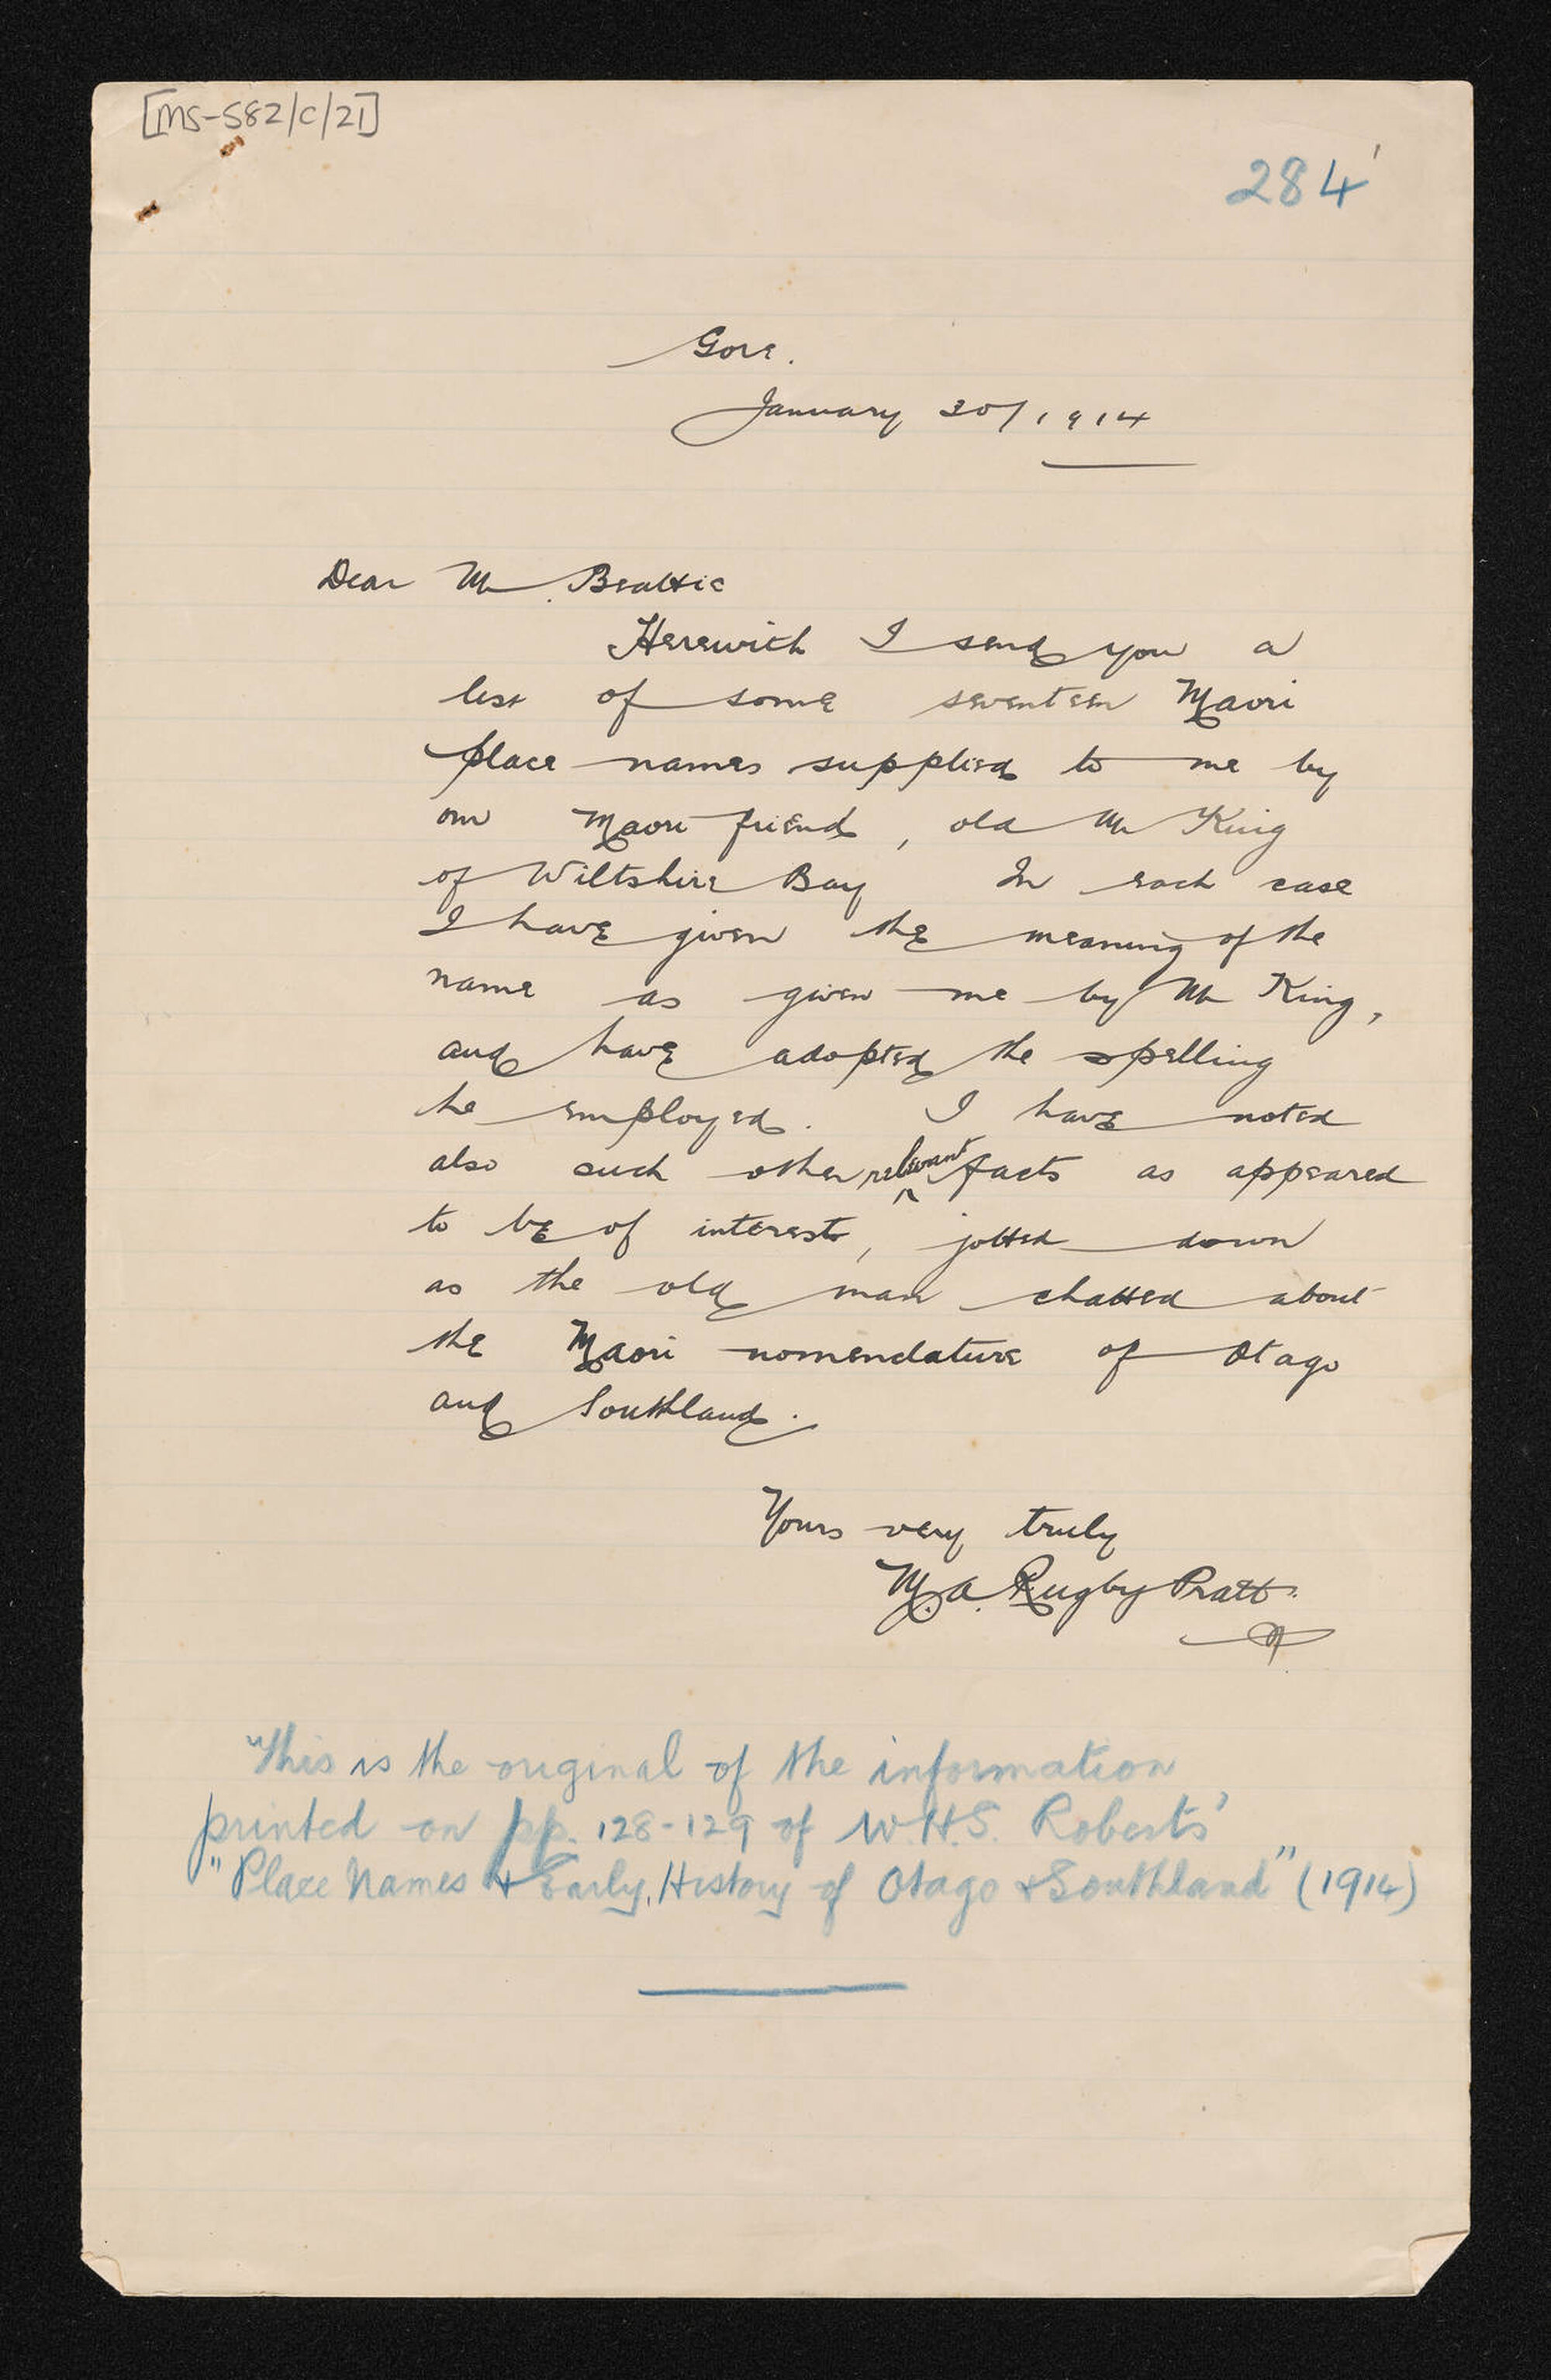 [MS-582/C/21]
284
Gore.
January 30/1914
Dear Mr. Beattie
Herewith I send you a
list of some seventeen Maori
place names supplied to me by
our Maori friend, old Mr King
of Wiltshire Bay In each case
I have given the meaning of the
name as given me by Mr King,
and have adopted the spelling
he employed. I have noted
also such other relevant facts as appeared
to be of interest, jotted down
as the old man chatted about
the Maori nomenclature of Otago
and Southland.
Yours very truly
M. A. Rugby Pratt.
This is the original of the information
printed on pp. 128-129 of W.H.S. Roberts'
"Place Names & Early History of Otago & Southland" (1914)